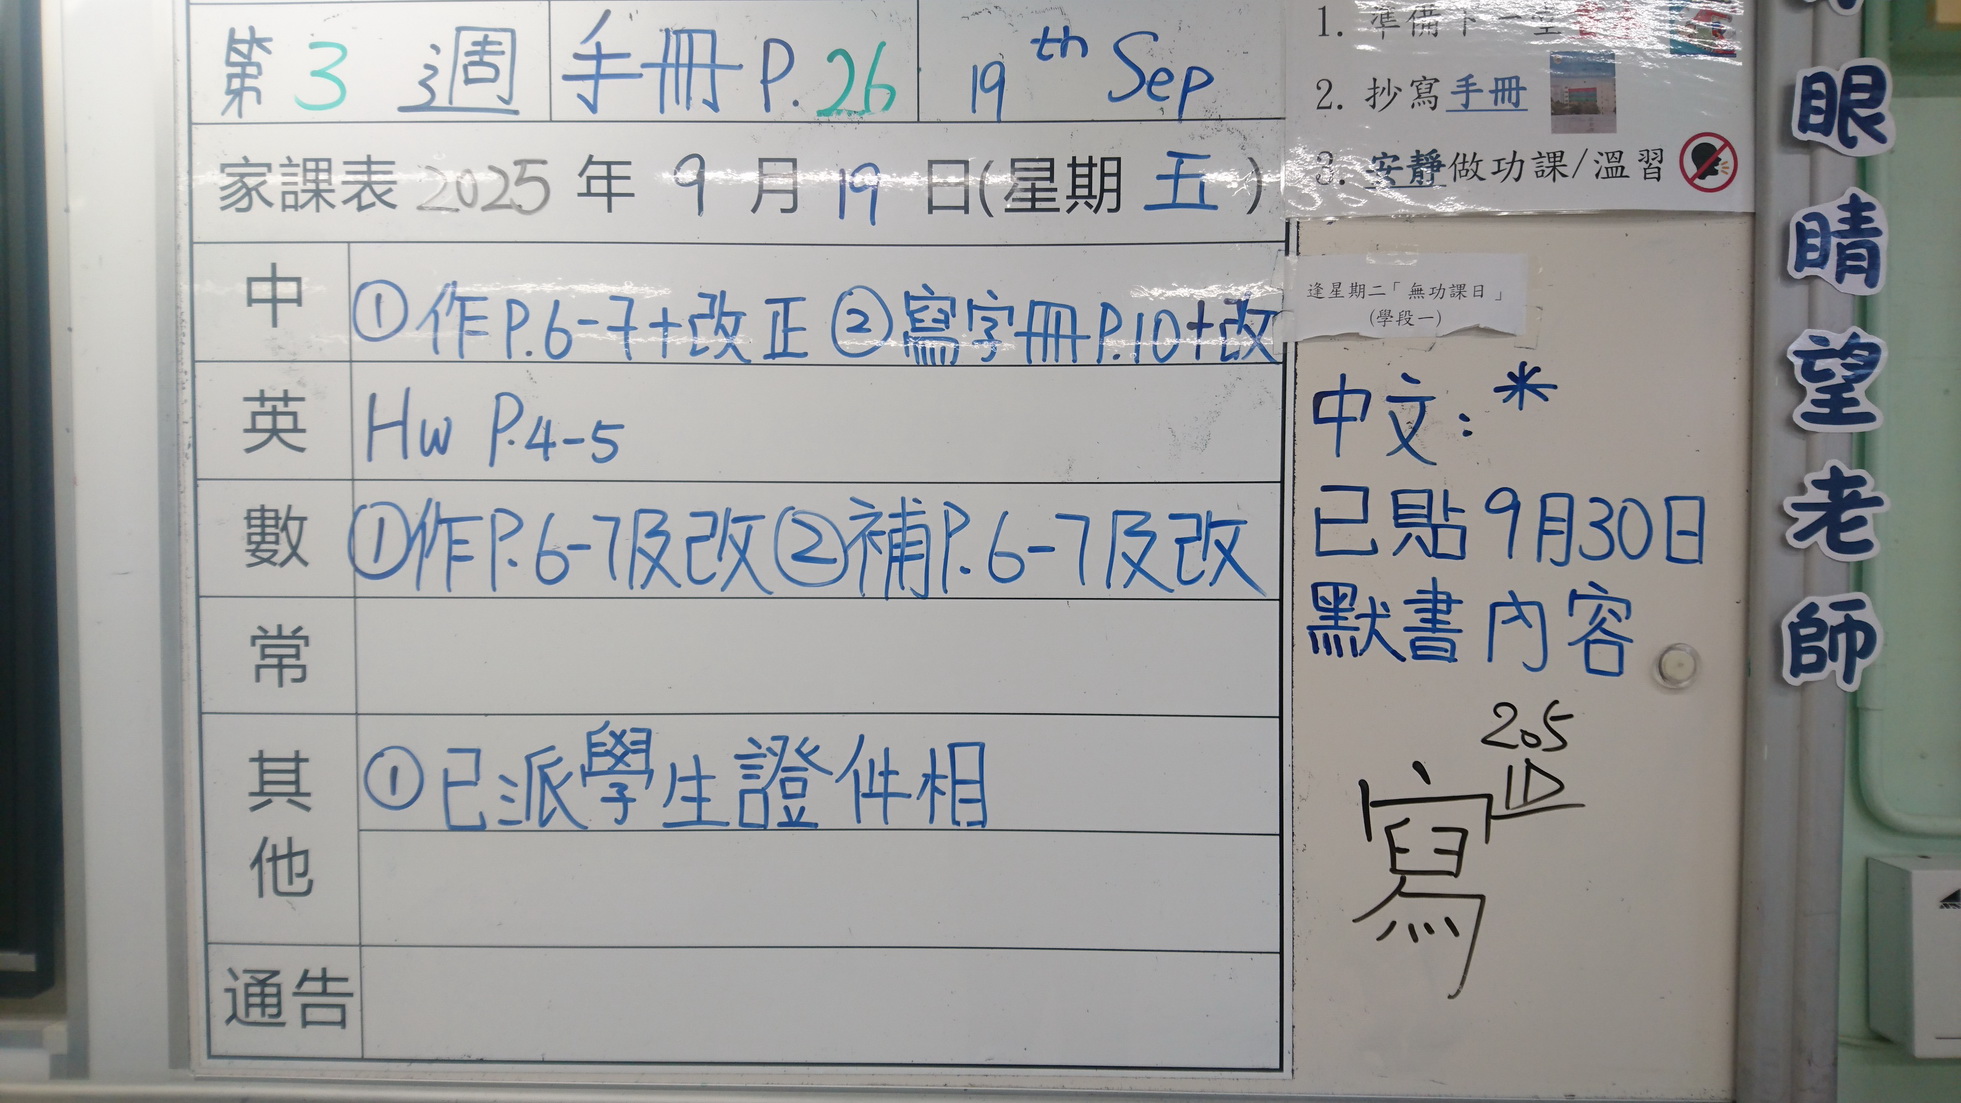 第 3 週 手冊 P.26 19th Sep
家課表 2025 年 9 月 19 日(星期 五 )
中 ①作P.6-7+改正 ②寫字冊P.10+改
英 Hw P.4-5
數 ①作P.6-7及改②補P.6-7及改
常
其他 ①已派學生證件相
通告
1. 準備下一堂
2. 抄寫手冊
3. 安靜做功課/溫習
逢星期二「無功課日」
(學段一)
中文：*
已貼9月30日
默書內容
寫
眼睛望老師